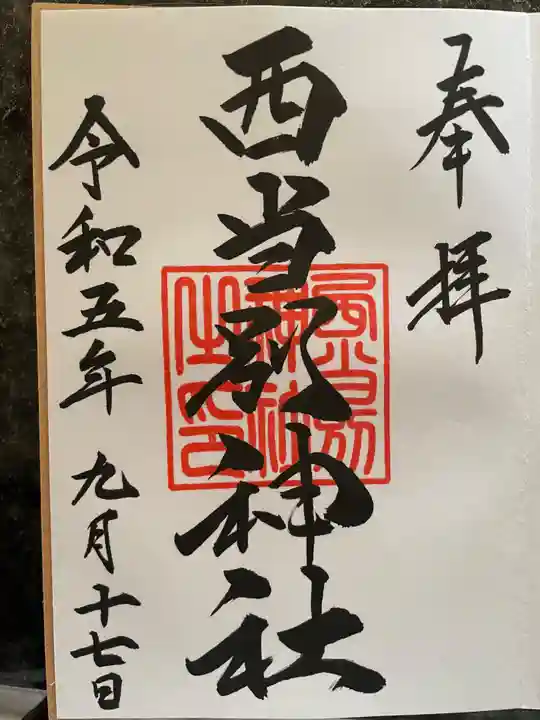 奉拝
西当別神社
令和五年 九月十七日